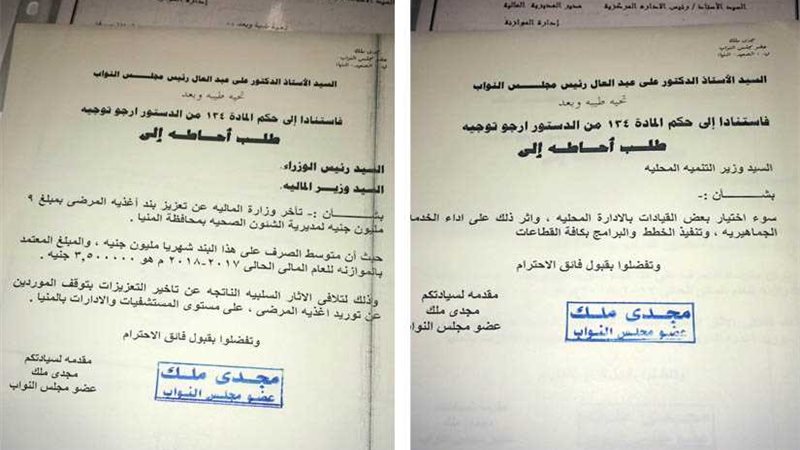 السيد الأستاذ الدكتور على عبد العال رئيس مجلس النواب
تحيه طيبه وبعد
فاستنادا إلى حكم المادة ١٣٤ من الدستور ارجو توجيه
طلب أحاطه إلى
السيد رئيس الوزراء.
السيد وزير الماليه.
بشأن :- تأخر وزارة الماليه عن تعزيز بند أغذيه المرضى بمبلغ ٩
مليون جنيه لمديرية الشئون الصحيه بمحافظة المنيا .
حيث أن متوسط الصرف على هذا البند شهريا مليون جنيه ، والمبلغ المعتمد
بالموازنه للعام المالى الحالى ٢٠١٧-٢٠١٨ م هو ٣,٥٠٠٠٠٠ جنيه .
وذلك لتلافى الاثار السلبيه الناتجه عن تاخير التعزيزات بتوقف الموردين
عن توريد اغذيه المرضى ، على مستوى المستشفيات والادارات بالمنيا .
وتفضلوا بقبول فائق الاحترام
مقدمه لسيادتكم
مجدى ملك
عضو مجلس النواب
مجدى ملك
عضو مجلس النواب
السيد الأستاذ / رئيس الاداره المركزية
مدير المديرية المالية
إدارة الموازنة
مجدى ملك
عضو مجلس النواب
السيد الأستاذ الدكتور على عبد العال رئيس مجلس النواب
تحيه طيبه وبعد
فاستنادا إلى حكم المادة ١٣٤ من الدستور ارجو توجيه
طلب أحاطه إلى
السيد وزير التنميه المحليه
بشأن :-
سوء اختيار بعض القيادات بالادارة المحليه ، واثر ذلك على اداء الخدما
الجماهيريه ، وتنفيذ الخطط والبرامج بكافة القطاعات
وتفضلوا بقبول فائق الاحترام
مقدمه لسيادتكم
مجدى ملك
عضو مجلس النواب
مجدى ملك
عضو مجلس النواب